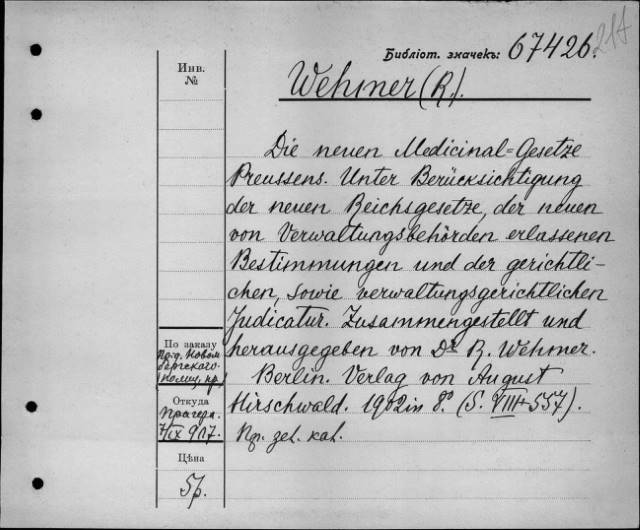 Библіот. значекъ: 67426.
214
Инв.
№
Wehmer (R.).
Die neuen Medicinal=Gesetze
Preussens. Unter Berücksichtigung
der neuen Reichsgesetze, der neuen
von Verwaltungsbehörden erlassenen
Bestimmungen und der gerichtli-
chen, sowie verwaltungsgerichtlichen
Judicatur. Zusammengestellt und
herausgegeben von Dr R. Wehmer.
Berlin. Verlag von August
Hirschwald. 1902 in 8º. (S. VIII+557).
По заказу
Откуда
7/IX 907.
Цѣна
5р.